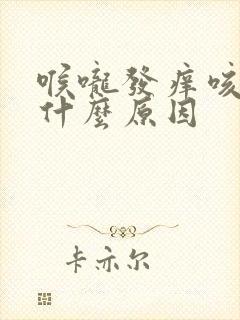 喉嚨發癢咳
什麼原因
卡亦尔